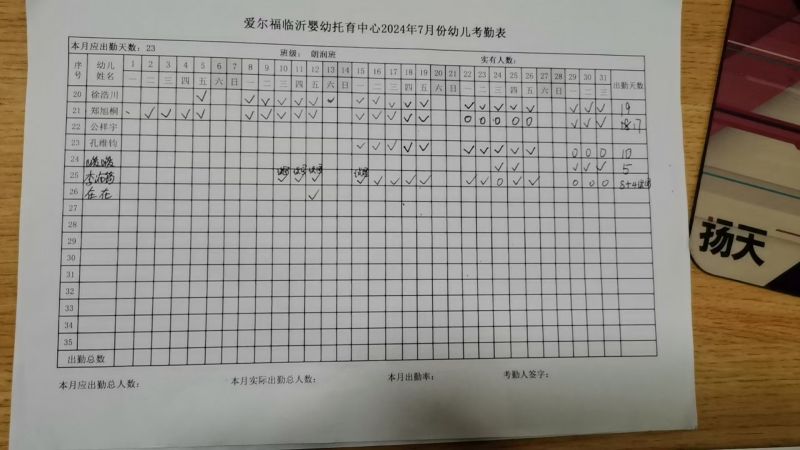 爱尔福临沂婴幼托育中心2024年7月份幼儿考勤表
本月应出勤天数：23 班级： 朗润班 实有人数：
序号 幼儿姓名 1 2 3 4 5 6 7 8 9 10 11 12 13 14 15 16 17 18 19 20 21 22 23 24 25 26 27 28 29 30 31 出勤天数
一 二 三 四 五 六 日 一 二 三 四 五 六 日 一 二 三 四 五 六 日 一 二 三 四 五 六 日 一 二 三
20 徐浩川 ✓ ✓ ✓ ✓ ✓ ✓ ✓ ✓ ✓ ✓ ✓ ✓ ✓ ✓ ✓ ✓ ✓ ✓ ✓ ✓ 19
21 郑旭桐 ✓ ✓ ✓ ✓ ✓ ✓ ✓ ✓ ✓ ✓ ✓ ✓ ✓ ✓ 0 0 0 0 0 ✓ ✓ ✓ 17
22 公梓宇
23 孔维钧 ✓ ✓ ✓ ✓ ✓ ✓ ✓ ✓ ✓ ✓ 0 0 0 10
24 ✓ ✓ ✓ ✓ ✓ 5
25 ✓ ✓ ✓ ✓ ✓ ✓ ✓ ✓ ✓ ✓ 0 ✓ ✓ 0 0 0 8+4
26 ✓
27
28
29
30
31
32
33
34
35
出勤总数
本月应出勤总人数： 本月实际出勤总人数： 本月出勤率： 考勤人签字：
扬天